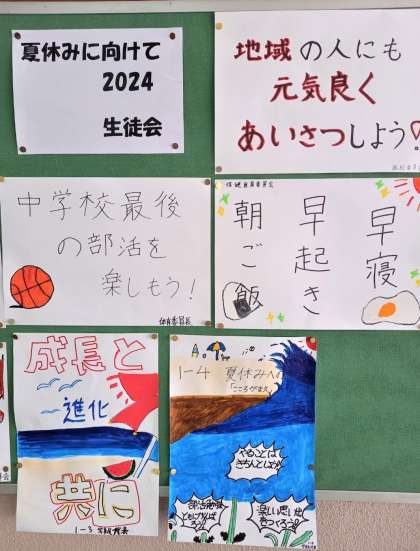 夏休みに向けて
2024
生徒会
地域の人にも
元気良く
あいさつしよう!
中学校最後
の部活を
楽しもう!
体育委員長
保健給食委員会
早寝
早起き
朝ご飯
成長と
進化
共に
1-3
1-4 夏休みへの
「こころがまえ」
やることは
きちんとしよう!
楽しい思い出
をつくろう!